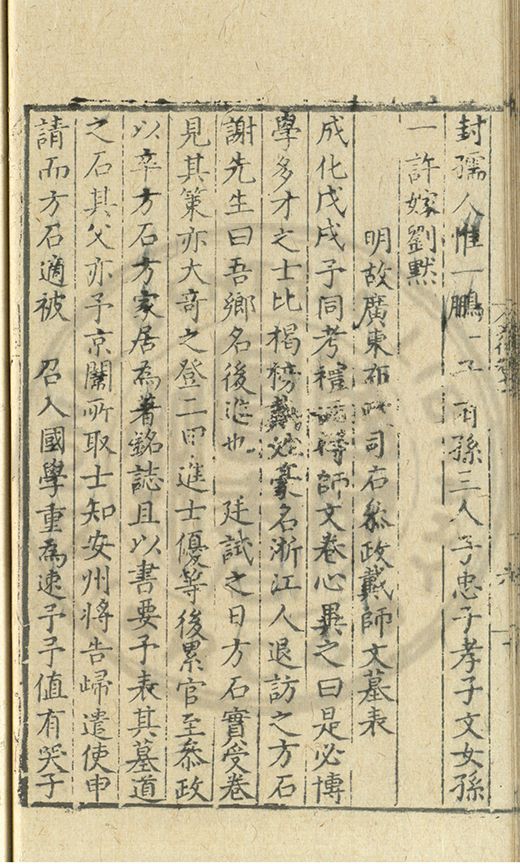 封孺人惟一鵬一子兩孫三人子忠子孝子文女孫
一許嫁劉黙
明故廣東布政司右叅政戴師文墓表
成化戊戌予同考禮闈得師文卷心異之曰是必博
學多才之士比揭榜戴姓豪名浙江人退訪之方石
謝先生曰吾鄉名後進也 廷試之日方石實受卷
見其策亦大竒之登二甲進士優等後累官至叅政
以卒方石方家居為著銘誌且以書要予表其墓道
之石其父亦予京闈所取士知安州將告歸遣使申
請而方石適被 召入國學重為速予予值有哭子